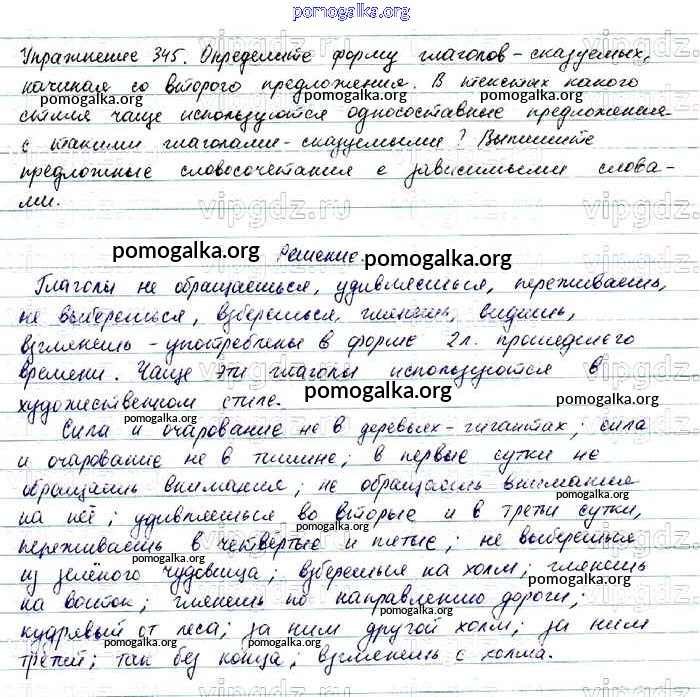 pomogalka.org
Упражнение 345. Определите форму глаголов-сказуемых,
начиная со второго предложения. В текстах какого
pomogalka.org pomogalka.org pomogalka.org
стиля чаще используются односоставные предложения
с такими глаголами-сказуемыми? Выпишите
pomogalka.org pomogalka.org pomogalka.org
предложные словосочетания с зависимыми слова-
ми.
vipgdz.ru vipgdz.ru vipgdz.ru
pomogalka.org Решение. pomogalka.org
Глаголы не обращаешься, удивляешься, переживаешь,
не выберешься, взберешься, глянешь, видишь,
pomogalka.org pomogalka.org pomogalka.org
взглянешь - употреблены в форме 2л. прошедшего
времени. Чаще эти глаголы используются в
pomogalka.org
художественном стиле.
pomogalka.org pomogalka.org
Сила и очарование не в деревьях-гигантах; сила
и очарование не в тишине; в первые сутки не
pomogalka.org pomogalka.org
обращаешь внимания; не обращаешь внимания
pomogalka.org
на неё; удивляешься во вторые и в третьи сутки,
pomogalka.org
переживаешь в четвёртые и пятые; не выберешься
pomogalka.org pomogalka.org
из зелёного чудовища; взберешься на холм; глянешь
pomogalka.org
на восток; глянешь по направлению дороги;
pomogalka.org
кудрявый от леса; за ним другой холм; за ним
pomogalka.org pomogalka.org
третий; так без конца; взглянешь с холма.